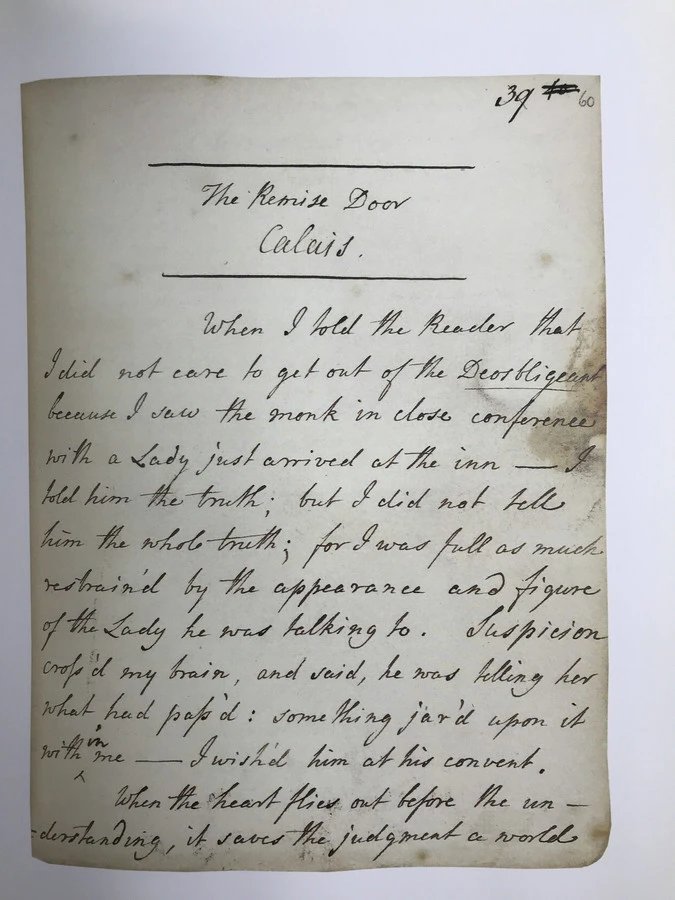 39 60
The Remise Door
Calais.
When I told the Reader that
I did not care to get out of the Desobligeant
because I saw the monk in close conference
with a Lady just arrived at the inn — I
told him the truth; but I did not tell
him the whole truth; for I was full as much
restrain'd by the appearance and figure
of the Lady he was talking to. Suspicion
cross'd my brain, and said, he was telling her
what had pass'd: something jar'd upon it
within me — I wish'd him at his convent.
When the heart flies out before the un-
-derstanding, it saves the judgment a world